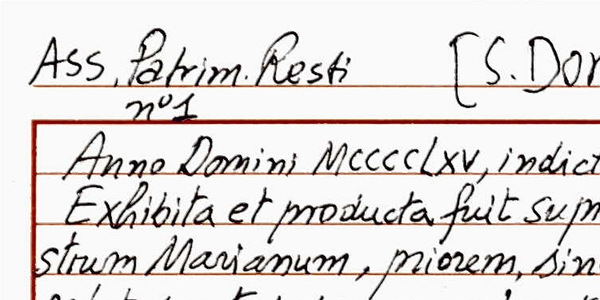 Ass. Patrim. Resti [S. Dor
nº 1
Anno Domini MCCCCLXV, indict
Exhibita et producta fuit sup
strum Marianum, priorem, sin